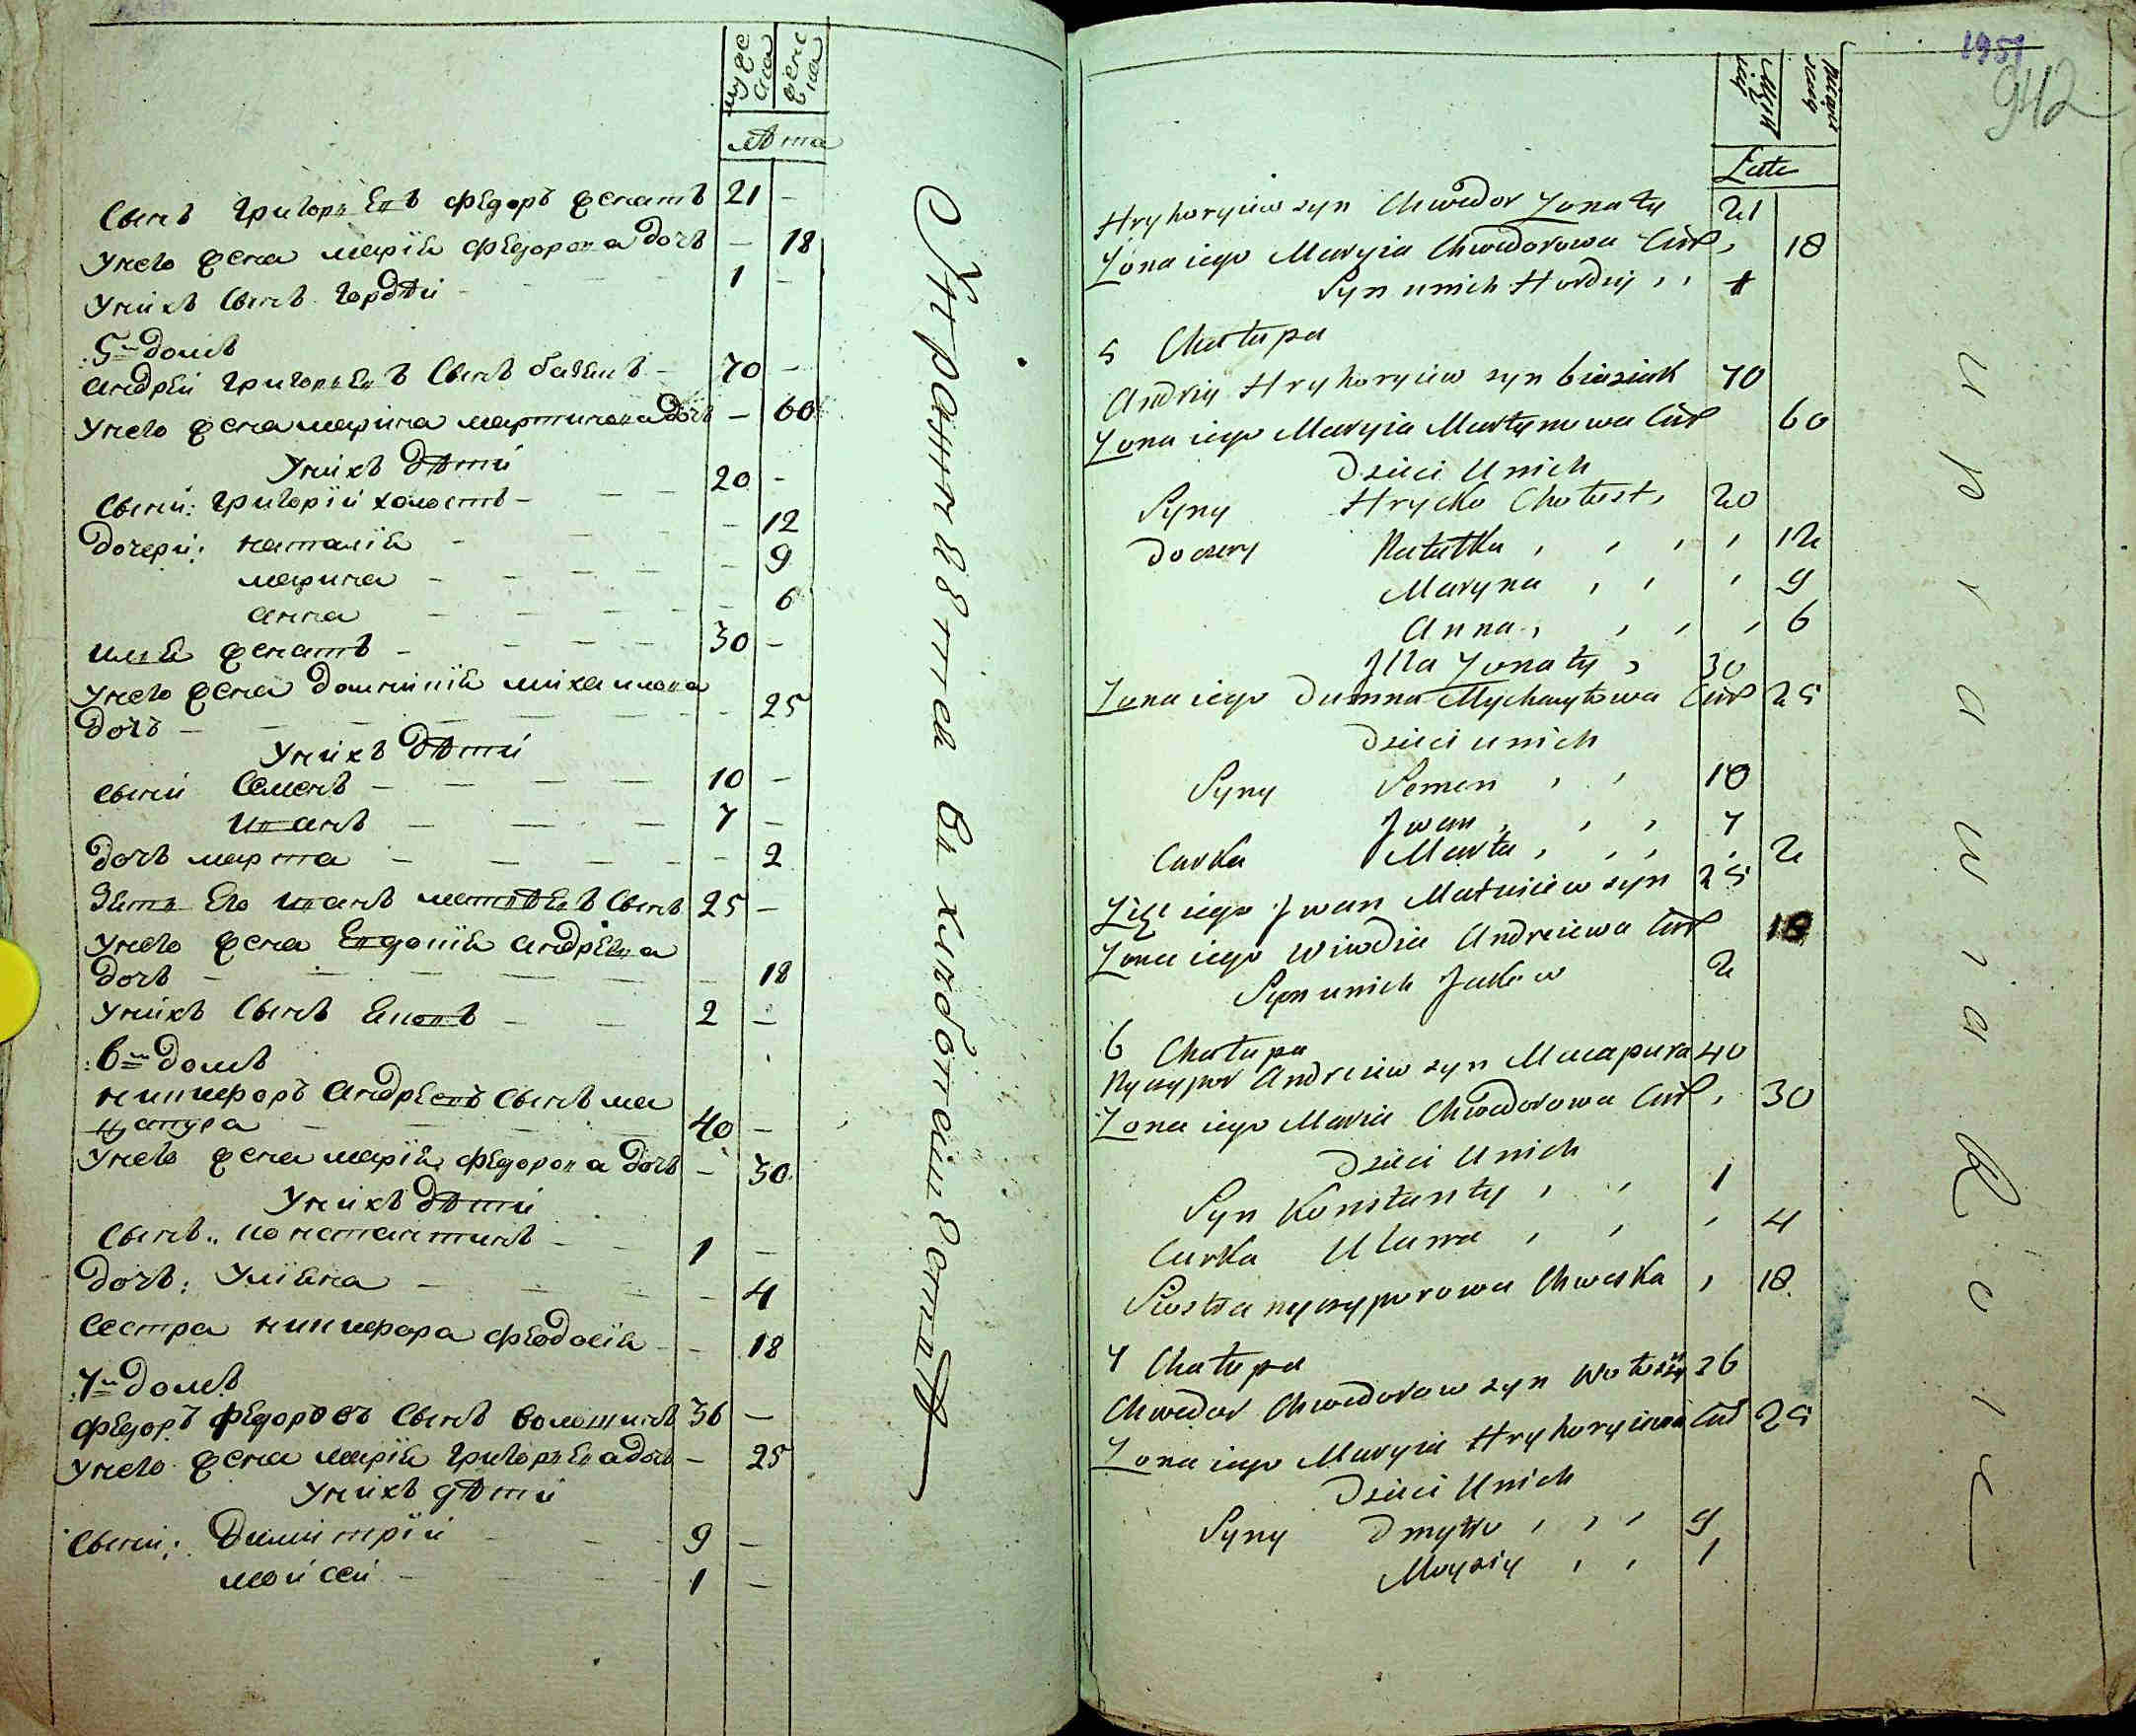 мужеска
женска
лѣта
Сынъ григорьевъ федоръ женатъ 21 -
Унего жена марія федорова дочь - 18
Унихъ сынъ гордѣй - 1 -
:5й домъ
андрей григорьевъ сынъ базикъ - 70 -
Унего жена марина мартинова дочь - 60
Унихъ дѣти
сыни: григорій холостъ - 20 -
дочери: наталія - 12
марина - 9
анна - 6
илья женатъ - 30 -
Унего жена домникія михаилова
дочь - 25
Унихъ дѣти
сыни Семенъ - 10 -
иванъ - 7 -
дочь марта - 2
Зять его иванъ матвѣевъ сынъ 25 -
Унего жена евдокія андреева
дочь - 18
Унихъ сынъ яковъ - 2 -
:6й домъ
никифоръ андреевъ сынъ ма
цапура - 40 -
Унего жена марія федорова дочь - 30
Унихъ дѣти
Сынъ: константинъ - 1 -
дочь: Уліяна - 4
Сестра никифора феодосія - 18
:7й домъ
федоръ федоровъ сынъ волошинъ 36 -
Унего жена марія григорьева дочь - 25
Унихъ дѣти
сыни: димитрій 9 -
мойсей - 1 -
1951
942
Lata
Hryhoryiow syn Chwedor Zonaty 21
Zona iego Maryia Chwedorowa Cur, 18
Syn unich Hordiy , , 1
5 Chałupa
Andriy Hryhoryiow syn biaziuk 70
Zona iego Maryia Martynowa Cur 60
Dzieci Unich
Syny Hryćko Chołost, 20
Doczery Natałka , , , , 12
Maryna , , , 9
Anna , , , , 6
Illa Zonaty , 30
Zona iego Dumna Mychayłowa Cur 25
Dzieci unich
Syny Semen , , 10
Jwan , , , 7
Curka Marta , , , , 2
Zięć iego Jwan Matwiiew syn 25
Zona iego Wiwdia Andreiewa Cur 18
Syn unich Jakow 2
6 Chałupa
Nyczypor Andreiew syn Macapura 40
Zona iego Maria Chwedorowa Cur , 30
Dzieci Unich
Syn Konstanty , , 1
Curka Ulana , , , 4
Siostra nyczyporowa Chweska , 18
7 Chałupa
Chwedor Chwedorow syn Wołoszyn 36
Zona iego Maryia Hryhoryiewa Cur 25
Dzieci Unich
Syny Dmytro , , , 9
Moysiy , , 1